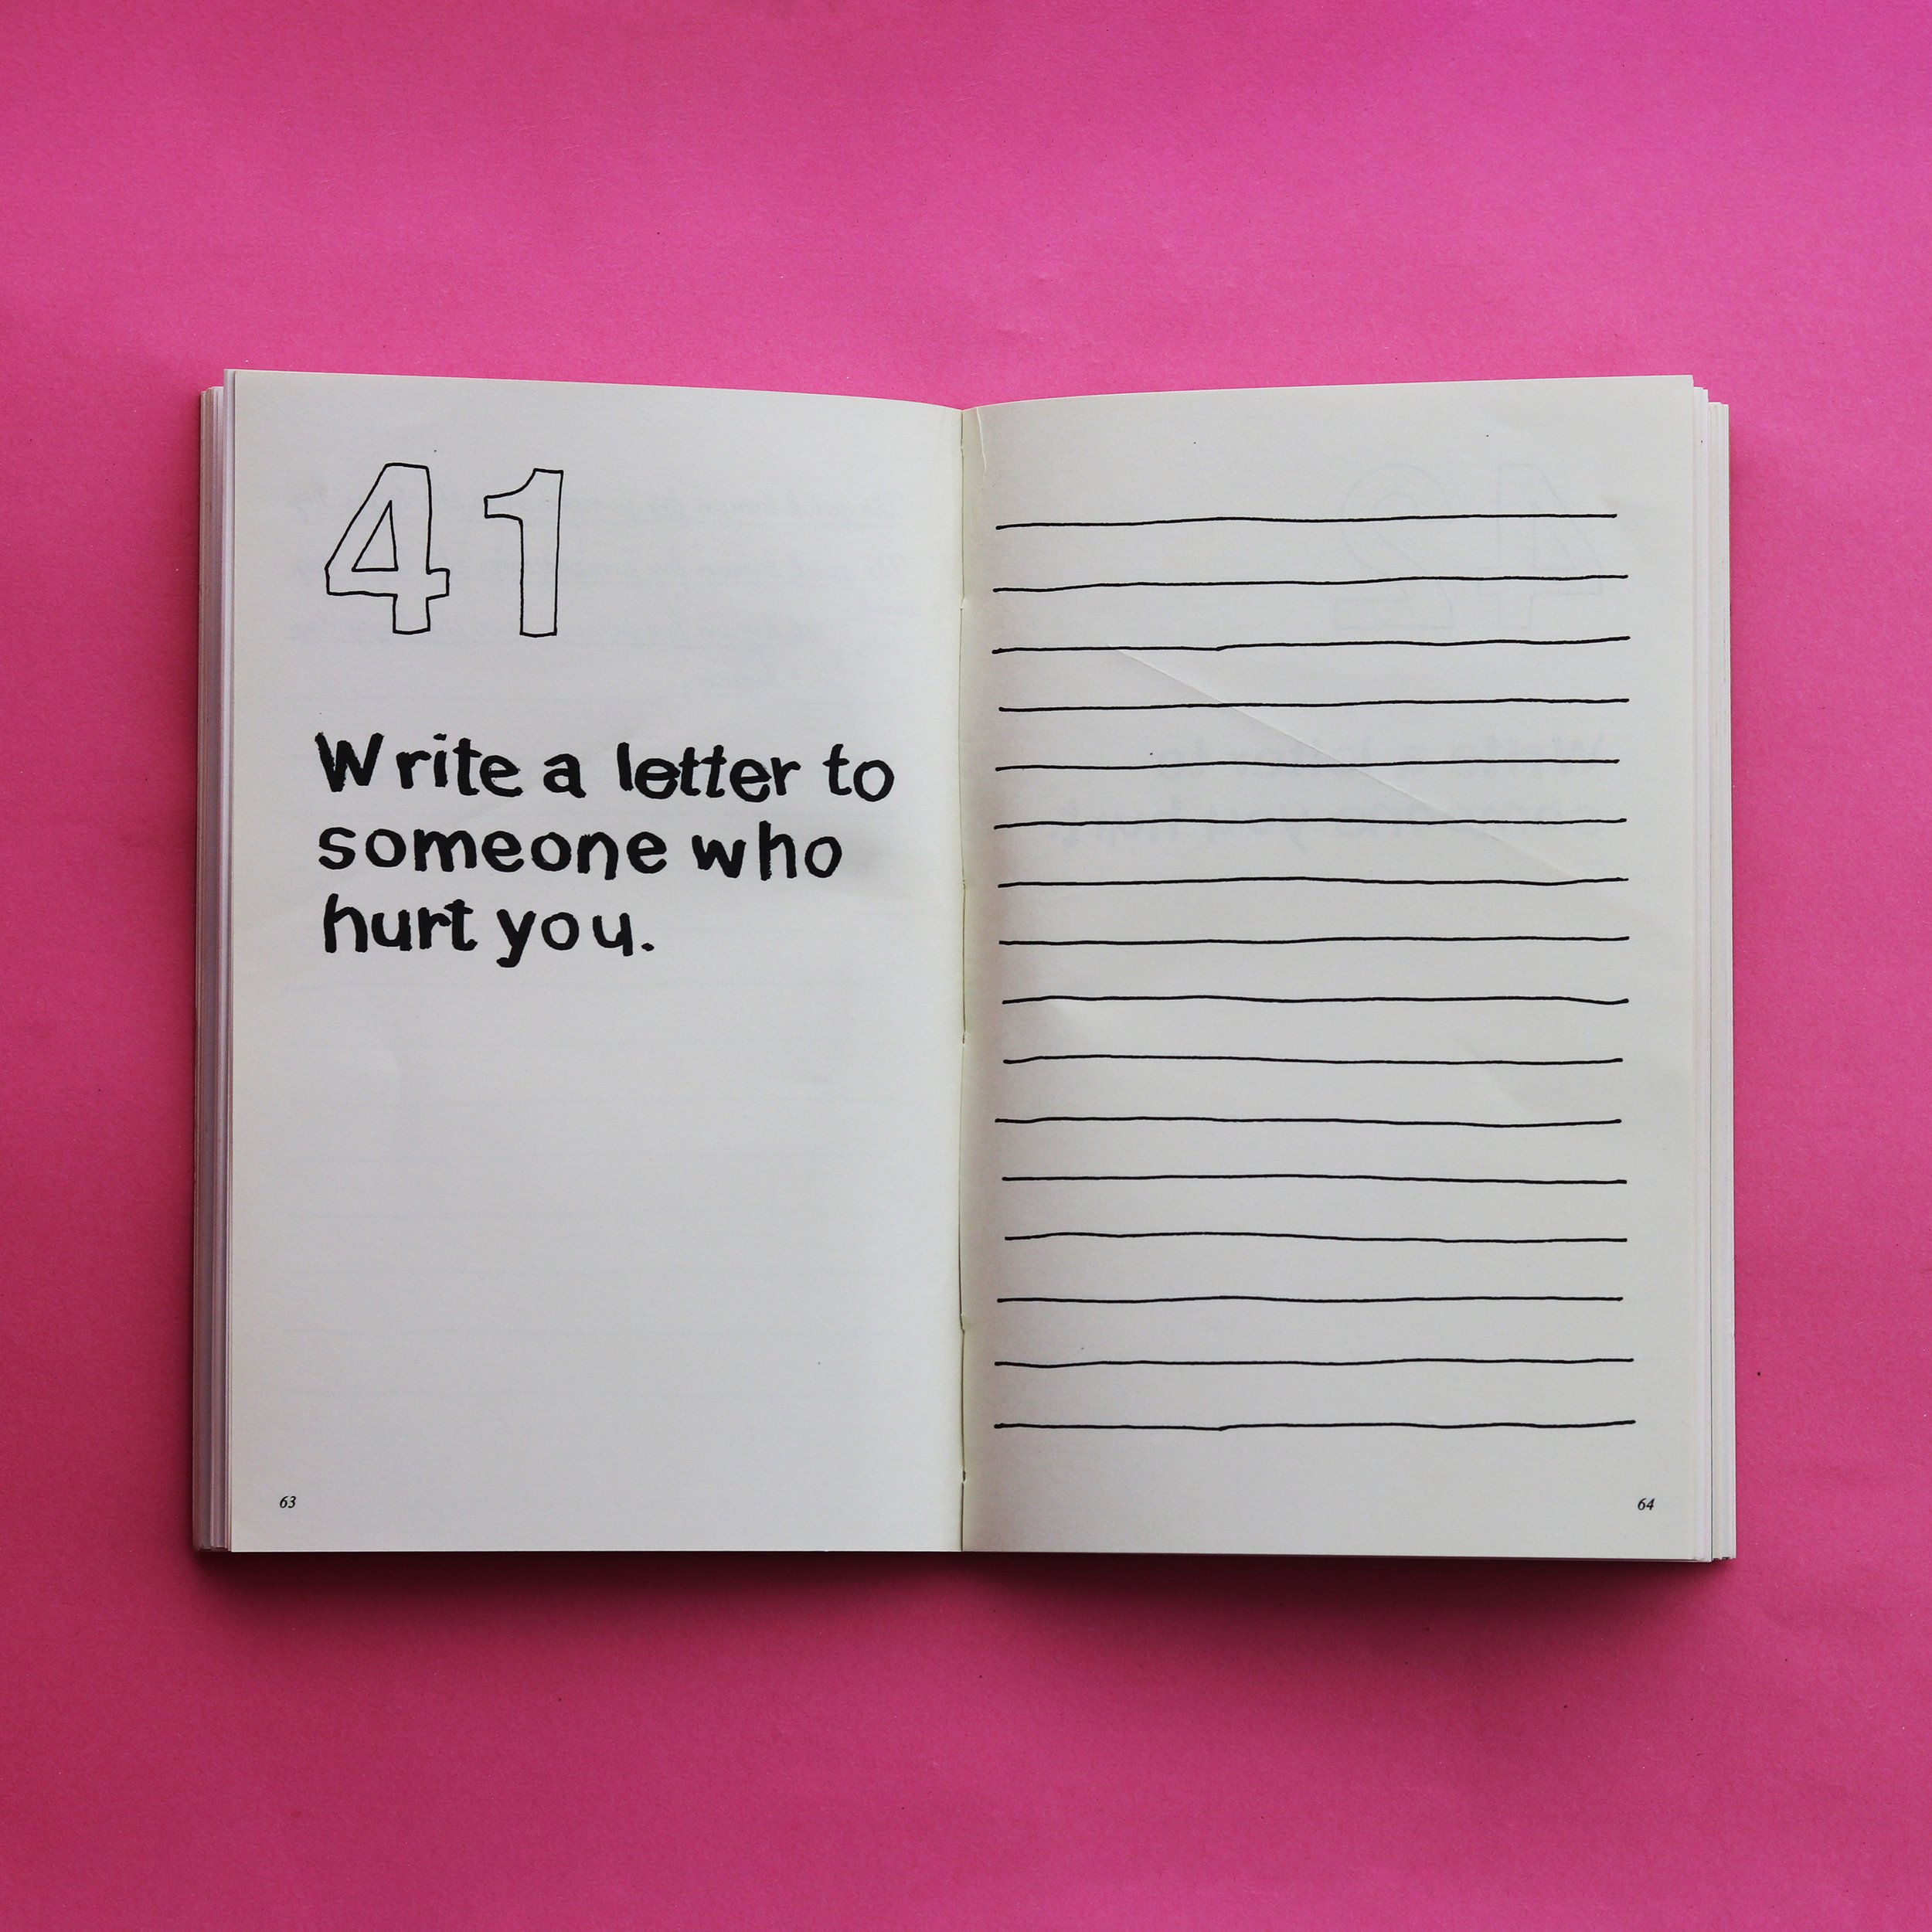 41
Write a letter to
someone who
hurt you.
63
64